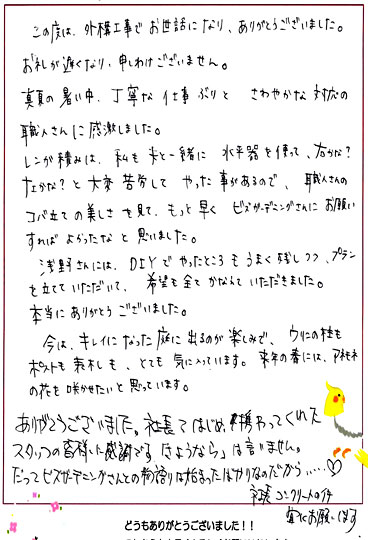 この度は、外構工事でお世話になり、ありがとうございました。
お礼が遅くなり、申しわけございません。
真夏の暑い中、丁寧な仕事ぶりと さわやかな対応の
職人さんに感激しました。
レンガ積みは、私も夫と一緒に 水平器を使って、右かな？
左かな？と大変苦労して やった事があるので、職人さんの
コバ立ての美しさを見て、もっと早く ビズガーデニングさんにお願い
すればよかったなと思いました。
浅野さんには、DIYでやったところもうまく残しつつ、プラン
を立てていただいて、希望も全てかなえていただきました。
本当にありがとうございました。
今は、キレイになった庭に出るのが楽しみで、ウリンの柱も
ポストも表札も、とても気に入っています。来年の春には、アネモネ
の花を咲かせたいと思っています。
ありがとうございました。社長てはじめ、携わってくれた
スタッフの皆様に感謝です「さようなら」は言いません。
だってビズガーデニングさんとの物語りは始まったばかりなのだから……♡
コンクリートの件
宜しくお願いします
どうもありがとうございました！！